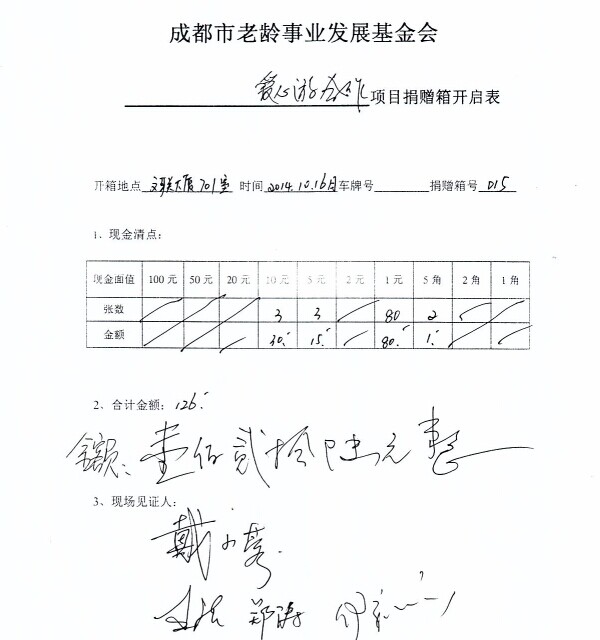 成都市老龄事业发展基金会
爱心游 项目捐赠箱开启表
开箱地点 文联大厦701室 时间 2014.10.16日 车牌号 捐赠箱号 015
1、现金清点:
现金面值 100元 50元 20元 10元 5元 2元 1元 5角 2角 1角
张数 3 3 80 2
金额 30. 15. 80. 1.
2、合计金额: 126.
金额: 壹佰贰拾陆元整
3、现场见证人:
戴
郑